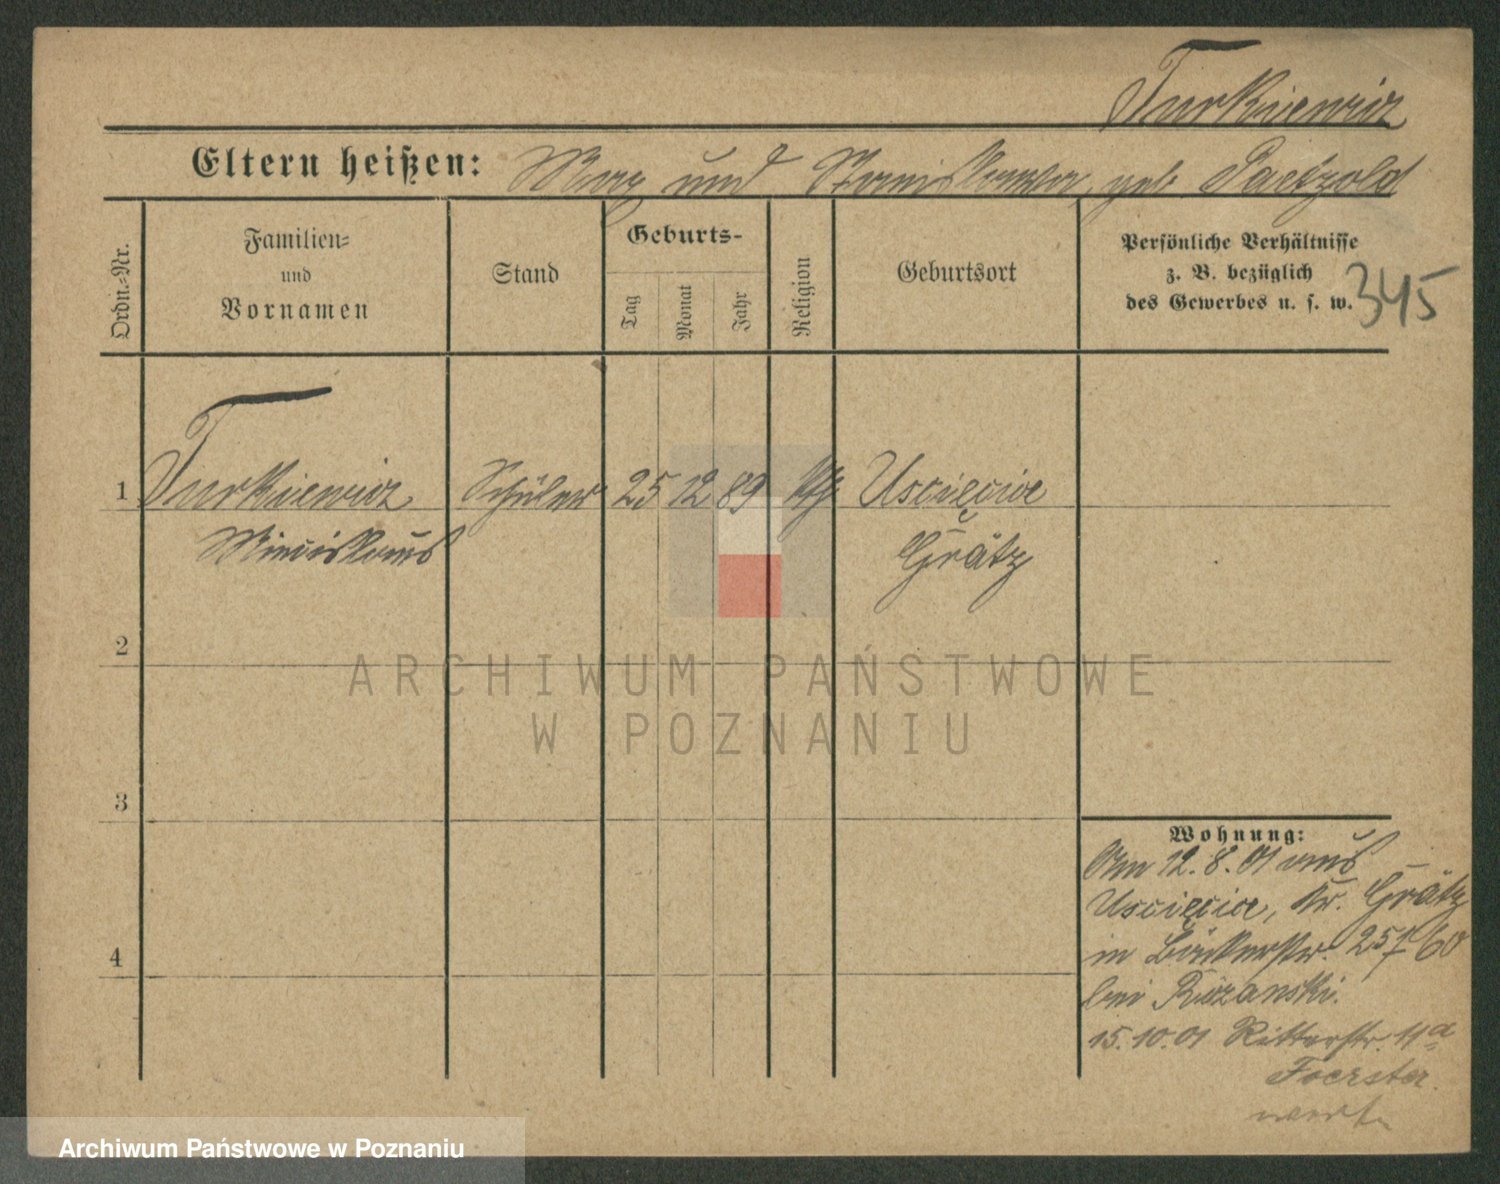 Turkiewicz
Eltern heißen: Max und Stanislawa, geb Paetzold
Ordn.-Nr.
Familien-
und
Vornamen
Stand
Geburts-
Tag
Monat
Jahr
Religion
Geburtsort
Persönliche Verhältnisse
z. B. bezüglich
des Gewerbes u. s. w.
345
1 Turkiewicz Schüler 25 12 89 kth Uścięcice
Miecislaus Grätz
2
ARCHIWUM PAŃSTWOWE
W POZNANIU
3
4
Wohnung:
Am 12. 8. 01 aus
Uścięcice, Kr. Grätz
in Bäckerstr. 25 / 60
bei Rózanski.
15. 10. 01 Ritterstr. 11a
Foerster.
Archiwum Państwowe w Poznaniu